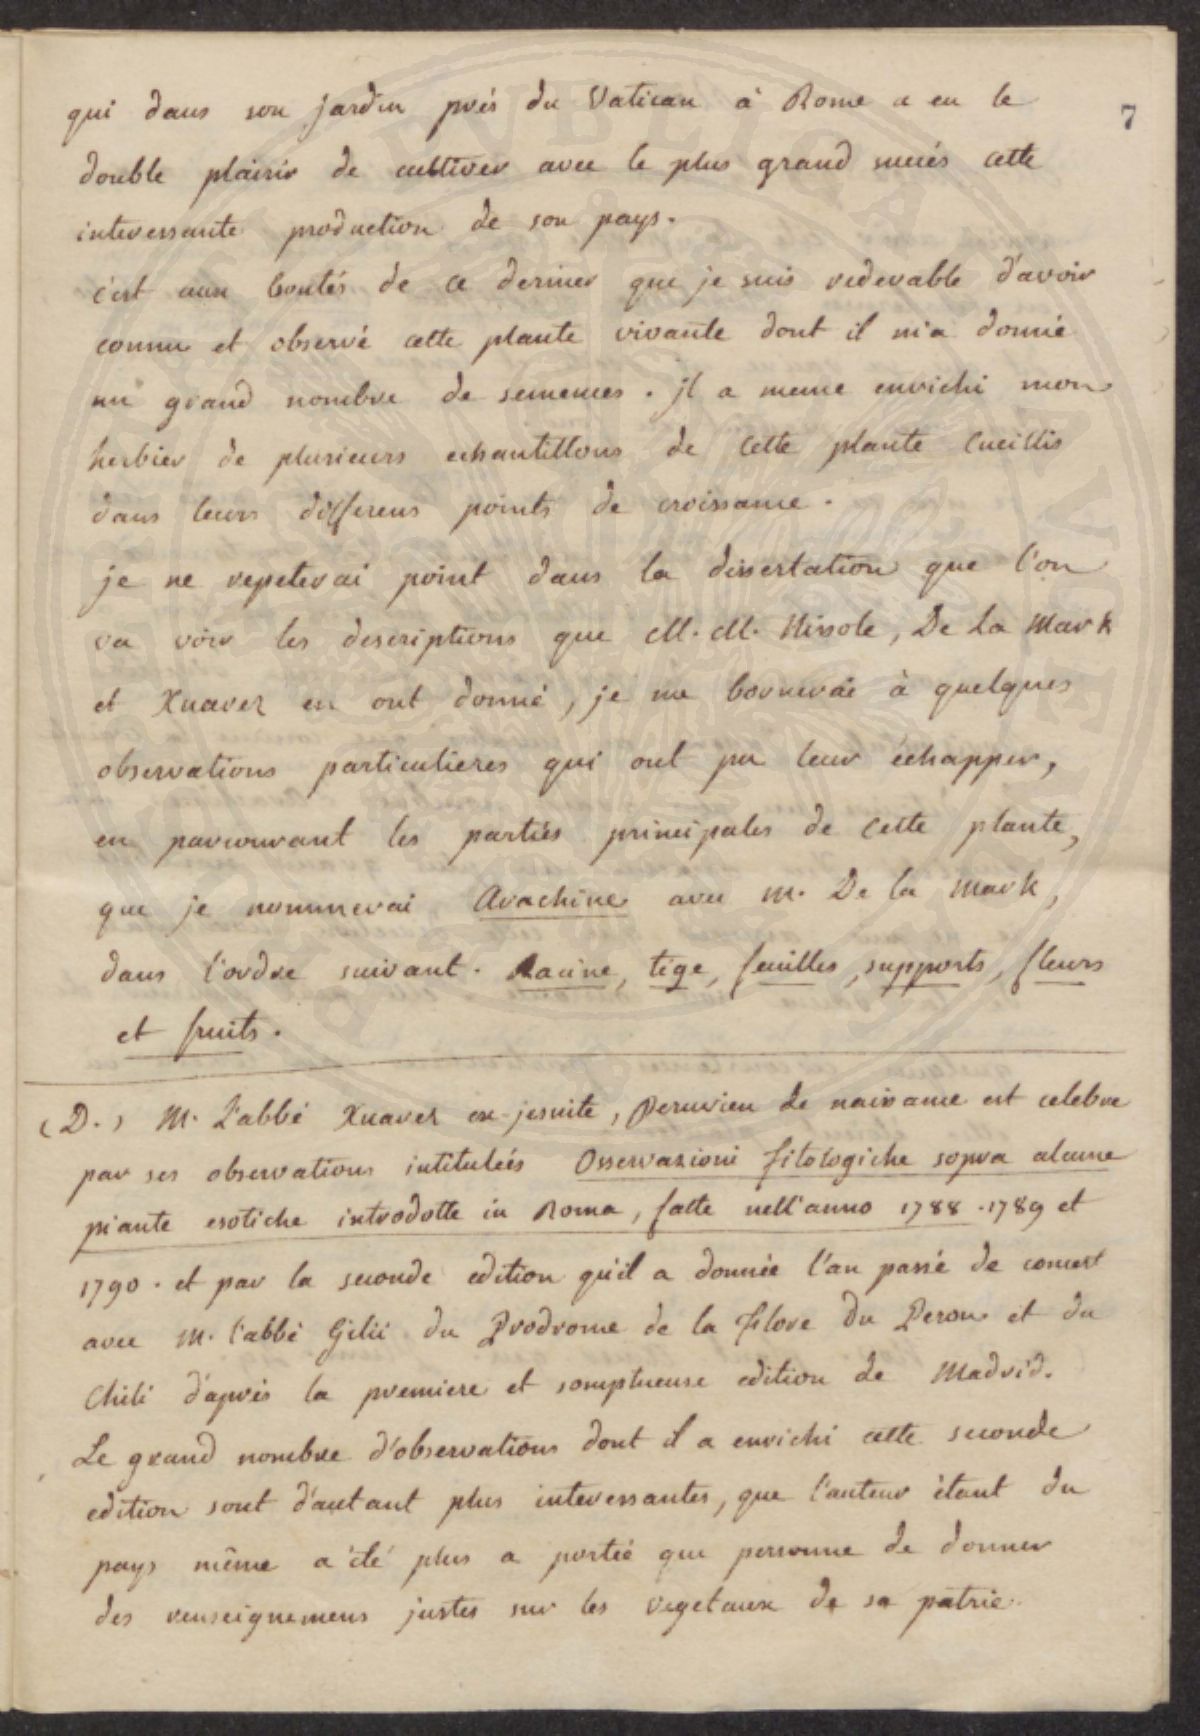 7
qui dans son jardin prés du Vatican à Rome a eu le
double plaisir de cultiver avec le plus grand succés cette
interessante production de son pays.
c'est aux bontés de ce dernier que je suis redevable d'avoir
connu et observé cette plante vivante dont il m'a donné
un grand nombre de semences. jl a meme enrichi mon
herbier de plusieurs echantillons de cette plante Cueillis
dans leurs differens points de croissance.
je ne repeterai point dans la dissertation que l'on
va voir les descriptions que M. M. Nissole, De La Mark
et Xuarez en ont donné, je me bornerai à quelques
observations particulieres qui ont pu leur échapper,
en parcourant les parties principales de cette plante,
que je nommerai Arachine avec m. De la Mark,
dans l'ordre suivant. Racine, tige, feuilles, supports, fleurs
et fruits.
(D.) M. L'abbé Xuarez ex-jesuite, Peruvien de naissance est celebre
par ses observations intituleés Osservazioni fitologiche sopra alcune
piante esotiche introdotte in Roma, fatte nell'anno 1788. 1789 et
1790. et par la seconde edition qu'il a donnée l'an passé de concert
avec M. l'abbé Gilii du Prodrome de la flore du Perou et du
Chili d'après la premiere et somptueuse edition de Madrid.
Le grand nombre d'observations dont il a enrichi cette seconde
edition sont d'autant plus interessantes, que l'auteur étant du
pays même a été plus a portée que personne de donner
des renseignemens justes sur les vegetaux de sa patrie.